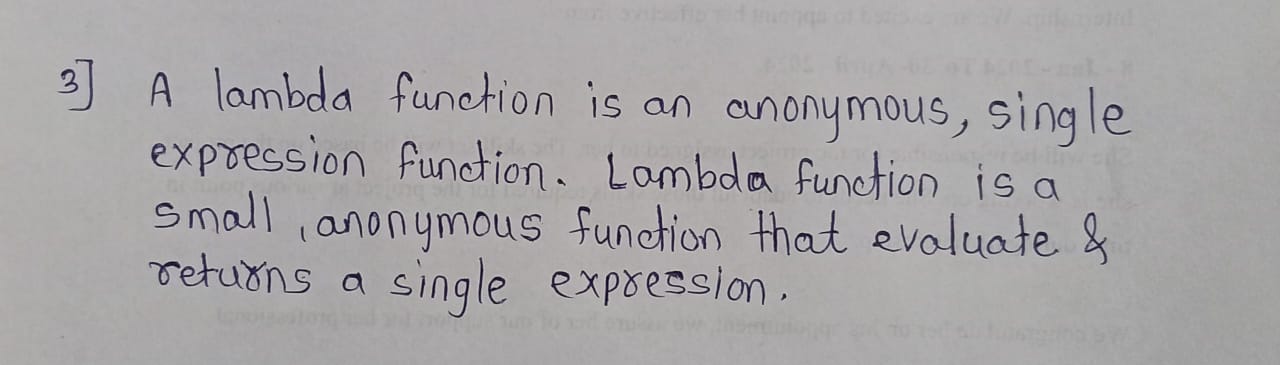 3] A lambda function is an anonymous, single
expression function. Lambda function is a
small, anonymous function that evaluate &
returns a single expression.